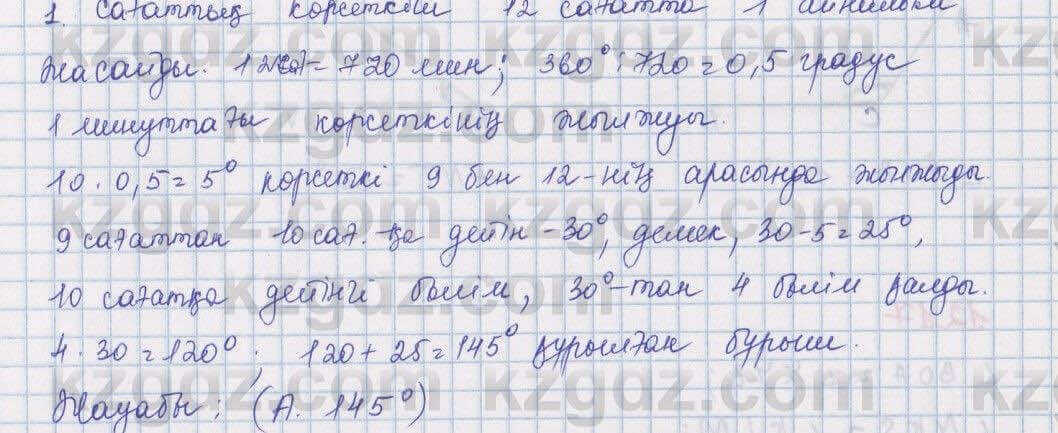 1. Сағаттың көрсеткіші 12 сағатта 1 айналым
жасайды. 12сағ = 720 мин; 360° : 720 = 0,5 градус
1 минуттағы көрсеткінің жылжуы.
10 · 0,5 = 5° көрсеткі 9 бен 12-нің арасында жылжыды.
9 сағаттан 10 сағ. қа дейін - 30°, демек, 30 - 5 = 25°,
10 сағатқа дейінгі бөлім, 30°-тан 4 бөлім қалды.
4 · 30 = 120°; 120 + 25 = 145° құрылған бұрыш.
Жауабы: (А. 145°)
kzgdz.com